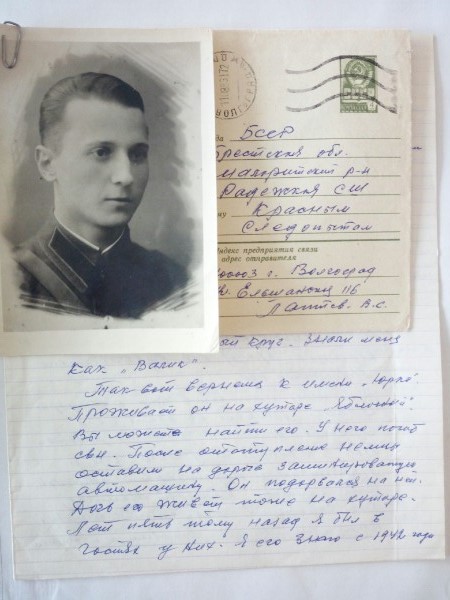 ВОЛГОГРАД
БССР
Брестская обл.
малоритский р-н
Радежская СШ
Красным
Следопытам
Индекс предприятия связи
адрес отправителя
г. Волгоград
Ельшанская 116
Лаптев. В.С.
круг. Знали меня
Как "Вагик".
Так вот вернемся к имени "Юрко"
Проживает он на хуторе Яблочный.
Вы можете найти его. У него погиб
сын. После отступления немцы
оставили на дороге заминированную
автомашину. Он подорвался на ней.
Дочь его живет тоже на хуторе.
Лет пять тому назад я был в
гостях у них. Я его знаю с 1942 года